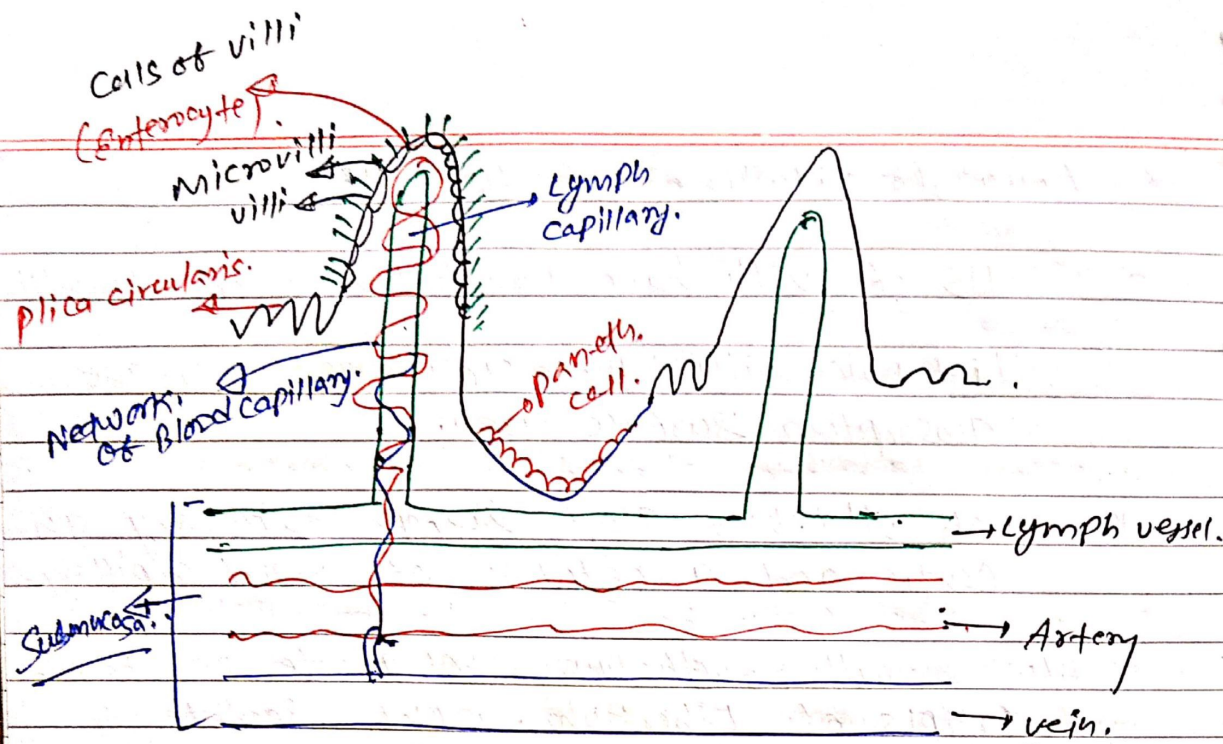 Cells of villi
(Enterocyte).
Microvilli
villi
Lymph
capillary.
plica circularis.
paneth.
cell.
Network.
of Blood capillary.
Lymph vessel.
Submucosa.
Artery
vein.